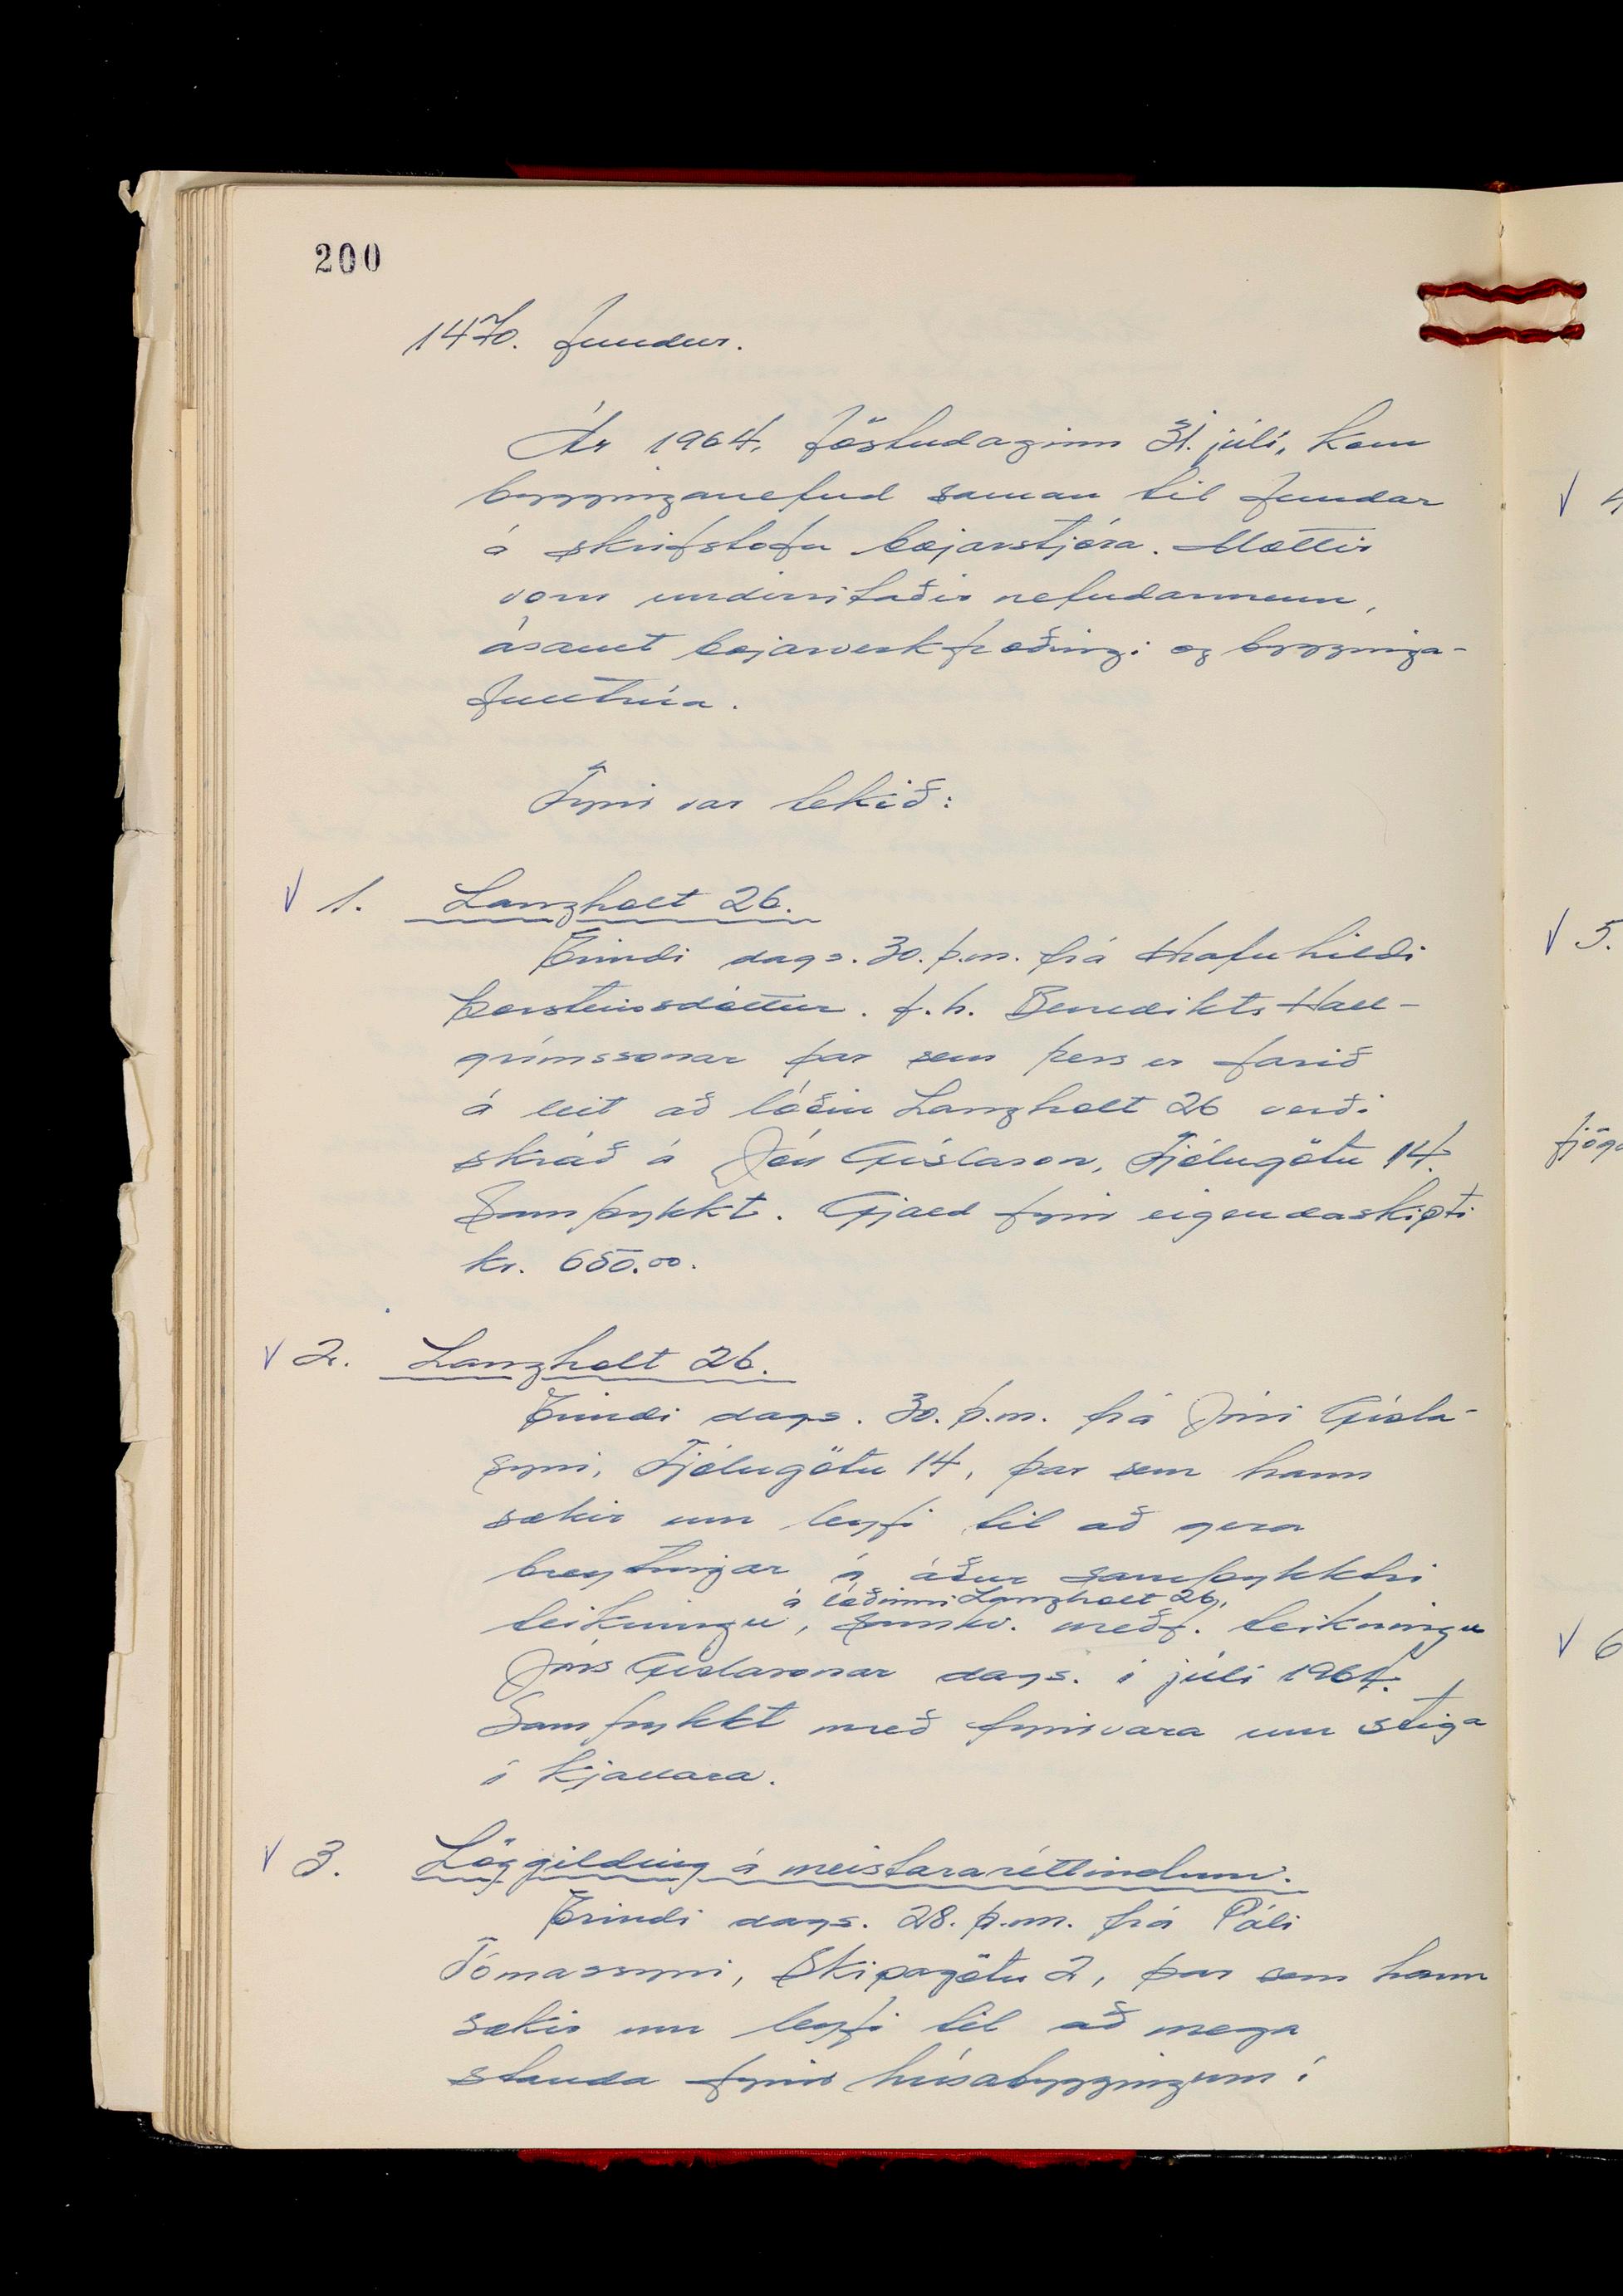 200
1470. fundur.
Ár 1964, föstudaginn 31. júlí, kom
bygginganefnd saman til fundar
á skrifstofu bæjarstjóra. Mættir
voru undirritaðir nefndarmenn,
ásamt bæjarverkfræðingi og bygginga-
fulltrúa.
Fyrir var tekið:
√ 1. Langholt 26.
Erindi dags. 30. þ.m. frá Hrafnhildi
Þorsteinsdóttur. f.h. Benedikts Hall-
grímssonar þar sem þess er farið
á leit að lóðin Langholt 26 verði
skráð á Jón Gíslason, Fjólugötu 14.
Samþykkt. Gjald fyrir eigendaskipti
kr. 650.00.
√ 2. Langholt 26.
Erindi dags. 30. þ.m. frá Jóni Gísla-
syni, Fjólugötu 14, þar sem hann
sækir um leyfi til að gera
breytingar á áður samþykktri
á lóðinni Langholt 26,
teikningu, samkv. meðf. teikningu
Jóns Gíslasonar dags. í júlí 1964.
Samþykkt með fyrirvara um stiga
í kjallara.
√ 3. Löggilding á meistararéttindum.
Erindi dags. 28. þ.m. frá Páli
Tómassyni, Skipagötu 2, þar sem hann
sækir um leyfi til að mega
standa fyrir húsabyggingum í
√ 4
√ 5.
fjögu
√ 6